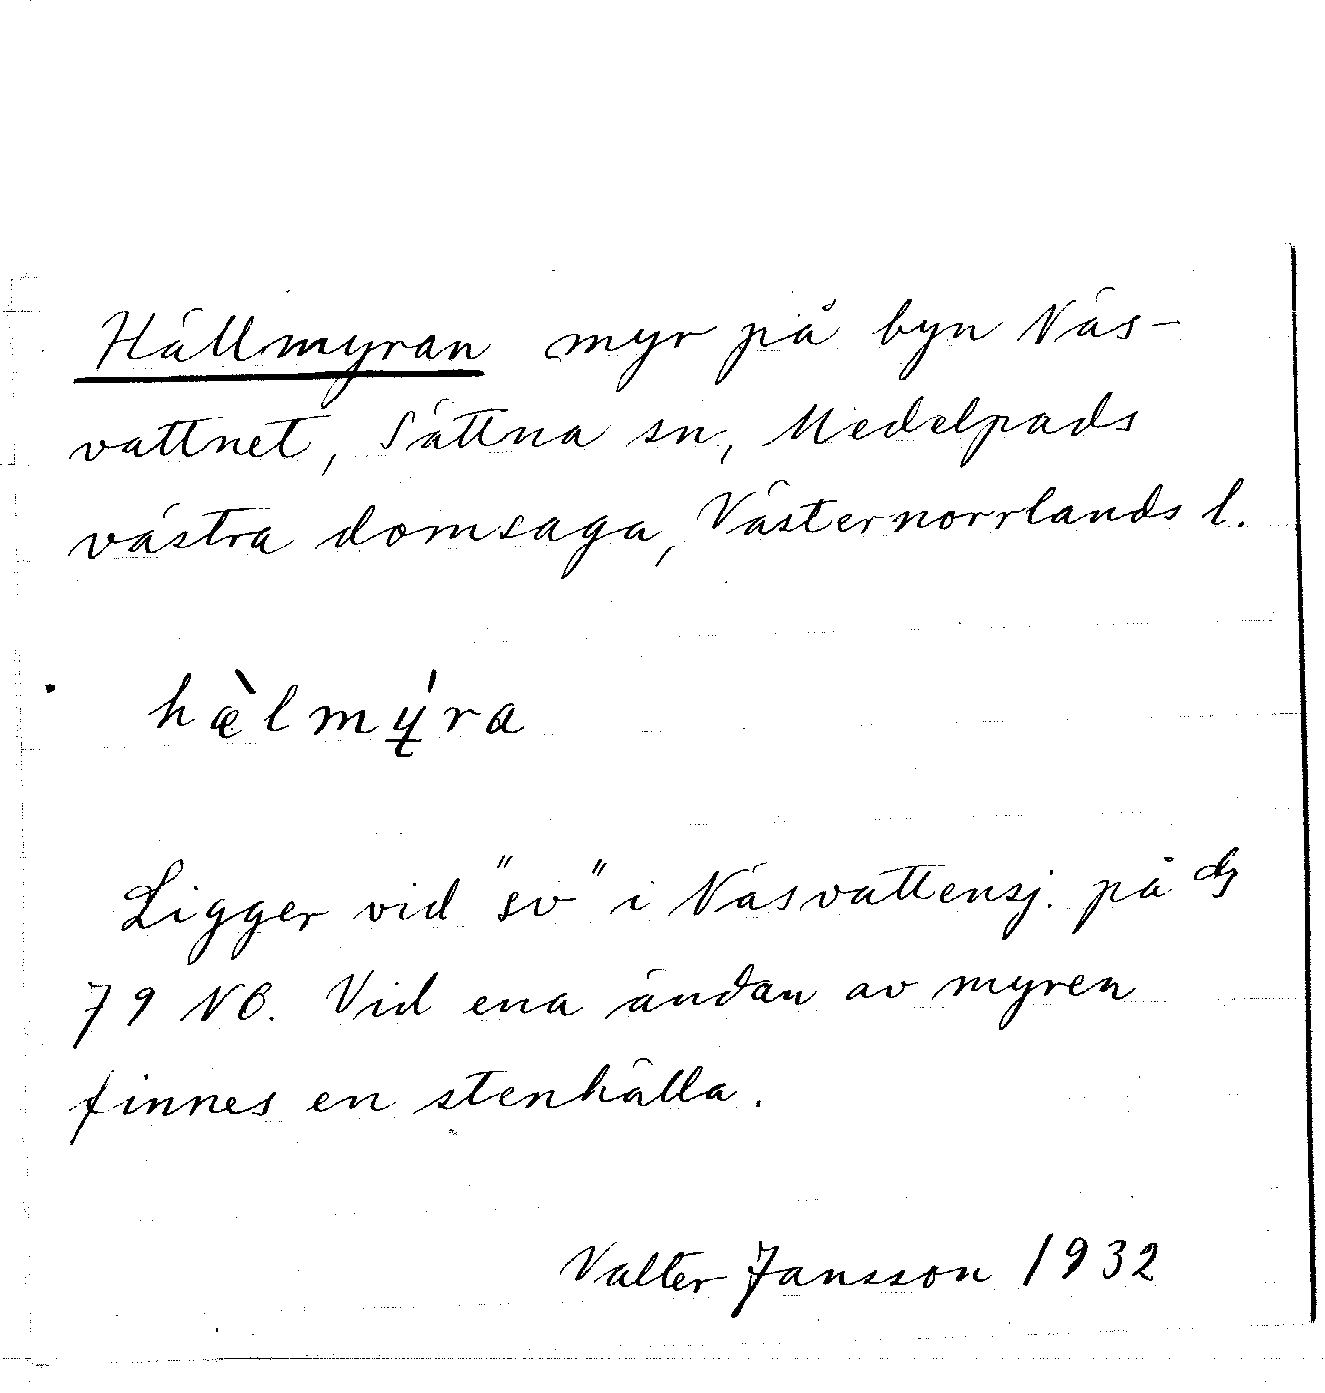 Hällmyran myr på byn Näs-
vattnet, Sättna sn, Medelpads
västra domsaga, Västernorrlands l.
hæ̀lmý̱ra
Ligger vid "sv" i Näsvattensj. på
79 NO. Vid ena ändan av myren
finnes en stenhälla.
Valter Jansson 1932